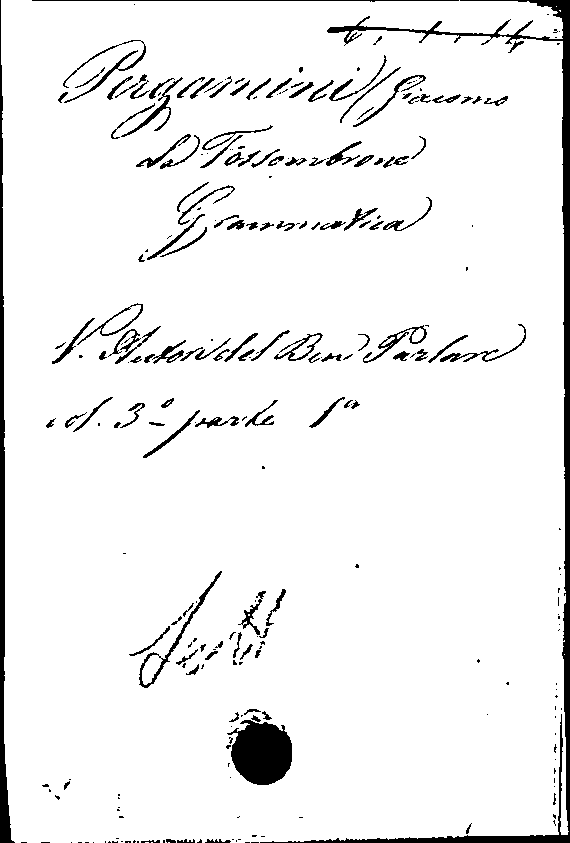 6. 1. 14
Pergamini (Giacomo
da Fossombrone)
Grammatica
V. Autori del Ben Parlare
vol. 3º parte 1ª